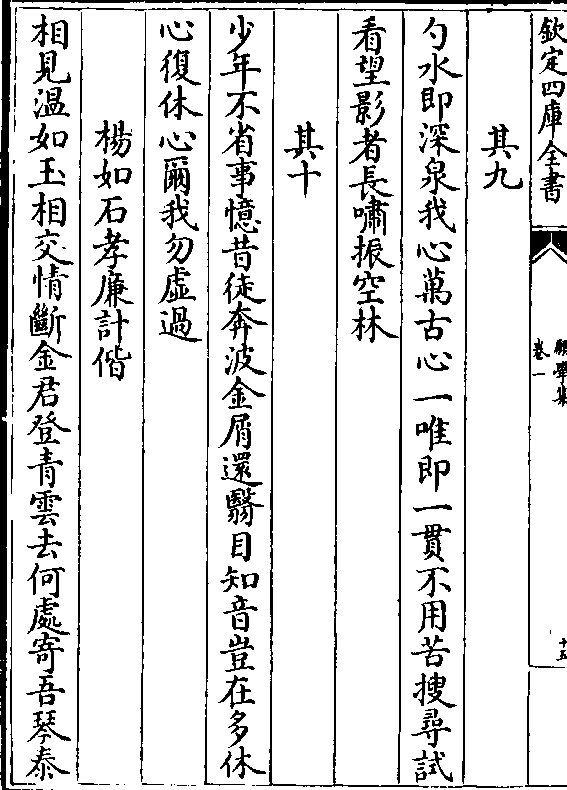 欽定四庫全書
願學集
卷一
十五
其九
勺水即深泉我心萬古心一唯即一貫不用苦搜尋試
看望影者長嘯振空林
其十
少年不省事憶昔徒奔波金屑還翳目知音豈在多休
心復休心爾我勿虛過
楊如石孝廉計偕
相見溫如玉相交情斷金君登青雲去何處寄吾琴泰